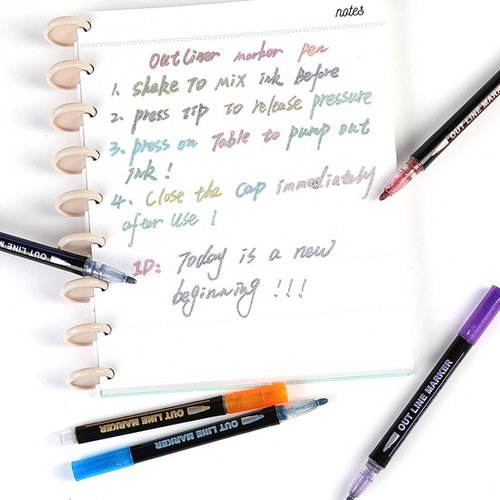 notes
Outliner marker pen
1. Shake To Mix ink before
2. press Tip To release pressure
3. press on Table to pump out
ink!
4. Close the Cap immediately
after use!
1D: Today is a new
beginning!!!
OUT LINE MARKER
OUT LINE MARKER
OUT LINE MARKER
OUT LINE
MARKER
OUT LINE MARKER